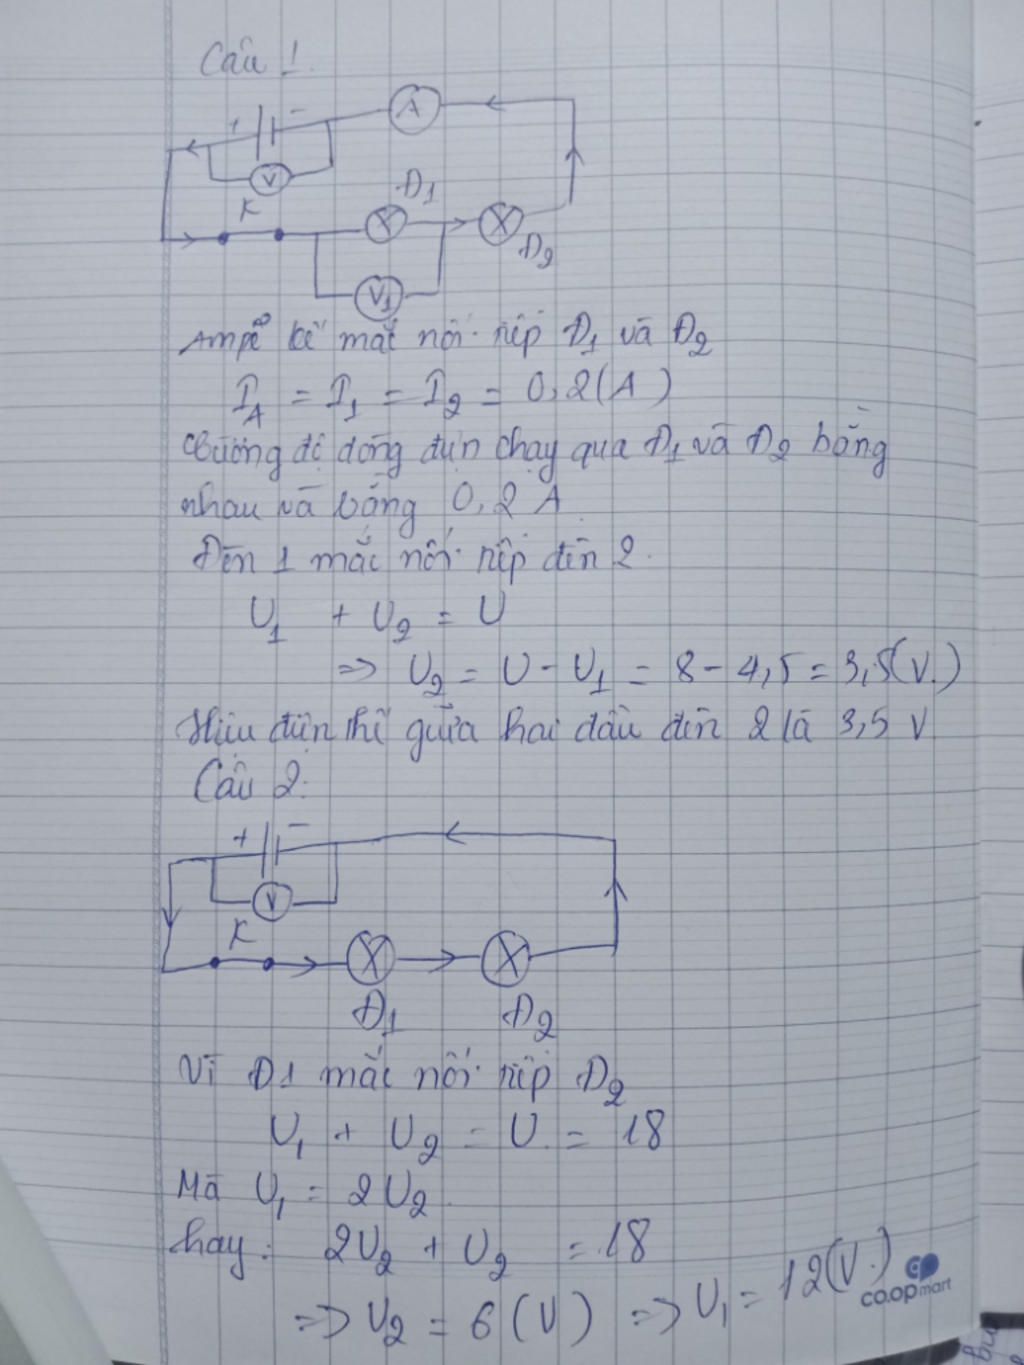 Câu 1.
+ - A
V
K Đ1
Đ2
V1
Ampe kế mắc nối tiếp Đ1 và Đ2
IA = I1 = I2 = 0,2(A)
Cường độ dòng điện chạy qua Đ1 và Đ2 bằng
nhau và bằng 0,2 A
Đèn 1 mắc nối tiếp đèn 2.
U1 + U2 = U
=> U2 = U - U1 = 8 - 4,5 = 3,5(V.)
Hiệu điện thế giữa hai đầu đèn 2 là 3,5 V
Câu 2:
+ -
V
K
Đ1 Đ2
Vì Đ1 mắc nối tiếp Đ2
U1 + U2 = U = 18
Mà U1 = 2U2.
hay: 2U2 + U2 = 18
=> U2 = 6 (V) => U1 = 12(V.)
co.opmart